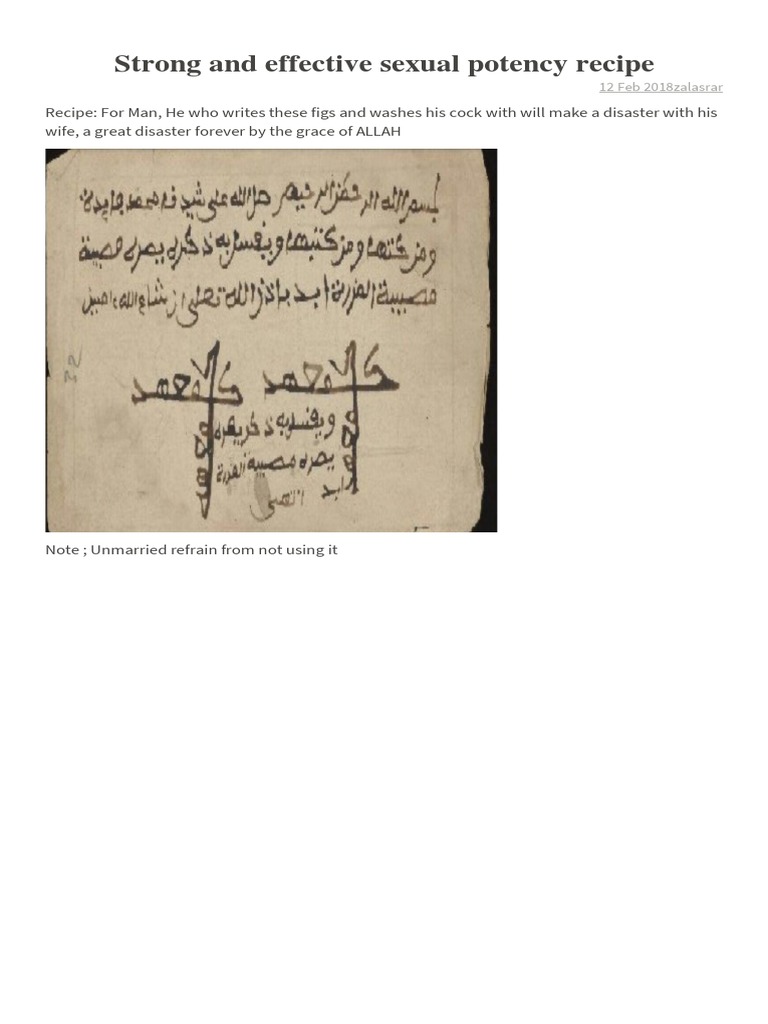 Strong and effective sexual potency recipe
12 Feb 2018zalasrar
Recipe: For Man, He who writes these figs and washes his cock with will make a disaster with his
wife, a great disaster forever by the grace of ALLAH
بسم الله الرحمن الرحيم صل الله على محمد فايدة
ومن كتبها ويغسل به ذكره مصيبة
مصيبة ابد باذن الله تعلى ان شاء الله امين
ويغسل به
مصيبة
ابد انتهى
32
Note ; Unmarried refrain from not using it